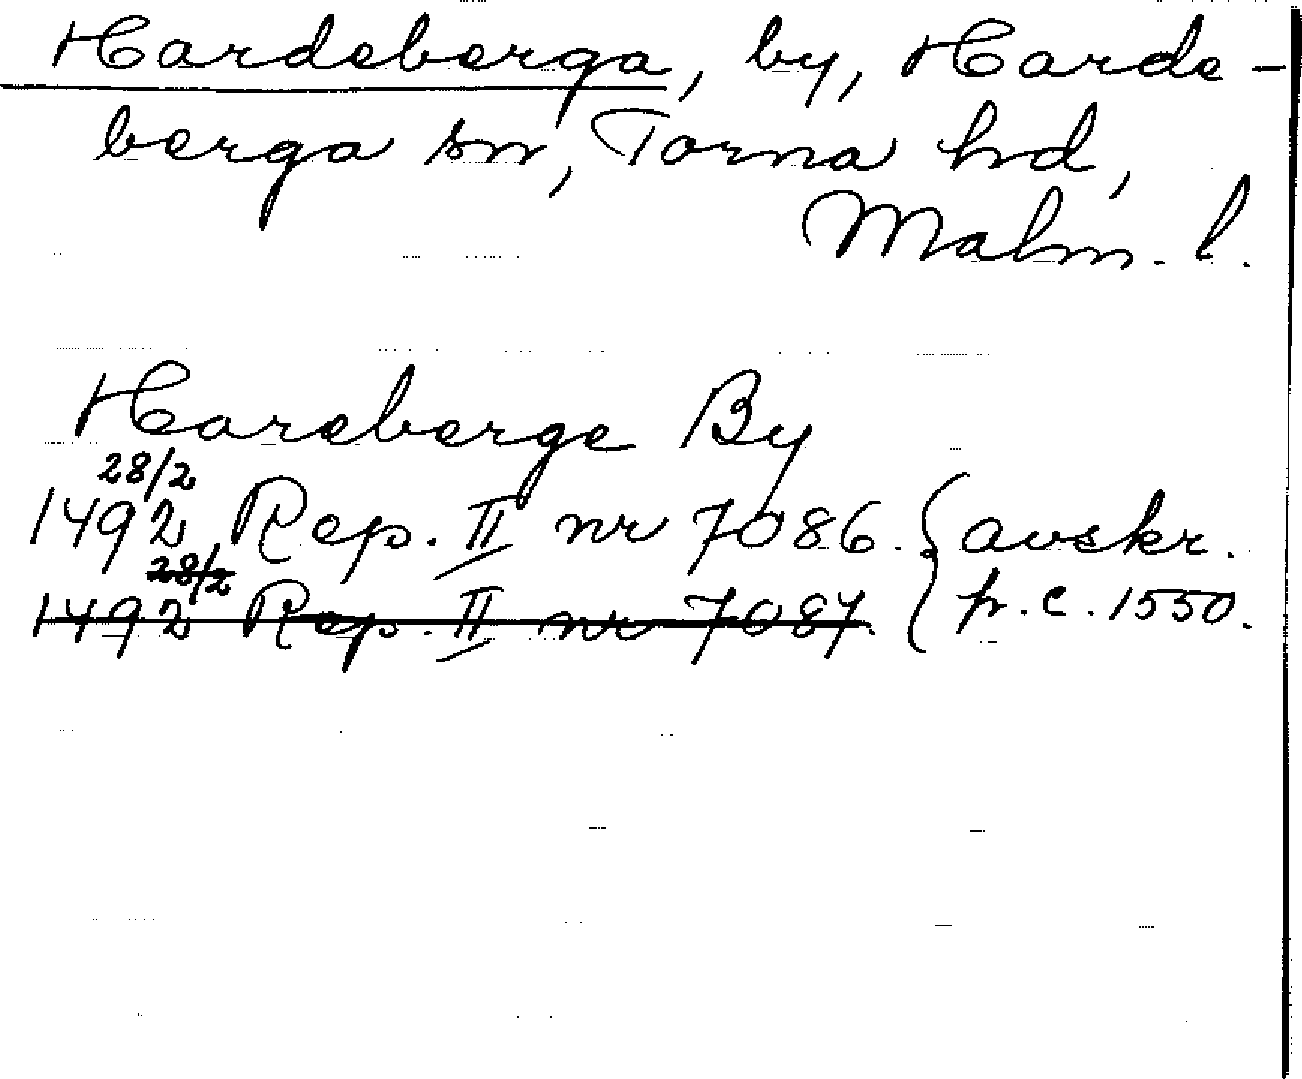 Hardeberga, by, Harde-
berga sn, Torna hd,
Malm. l.
Hareberge By
28/2
1492 Rep. II nr 7086. { avskr.
28/2
1492 Rep. II nr 7087. fr. c. 1550.